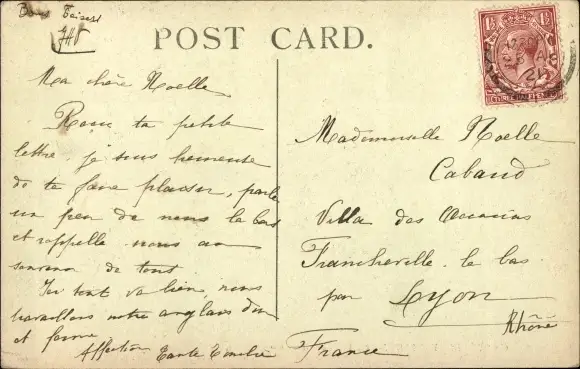 Bons Baisers
POST CARD.
Ma chère Noelle
Reçu ta petite
lettre je suis heureuse
de te faire plaisir, parle
un peu de nous là bas
et rappelle-nous au
souvenir de tous.
Ici tout va bien, nous
travaillons notre anglais dur
et ferme.
Affection Tante
Mademoiselle Noelle
Cabaud
Villa des Accacias
Francheville-le bas
par Lyon
Rhône
France